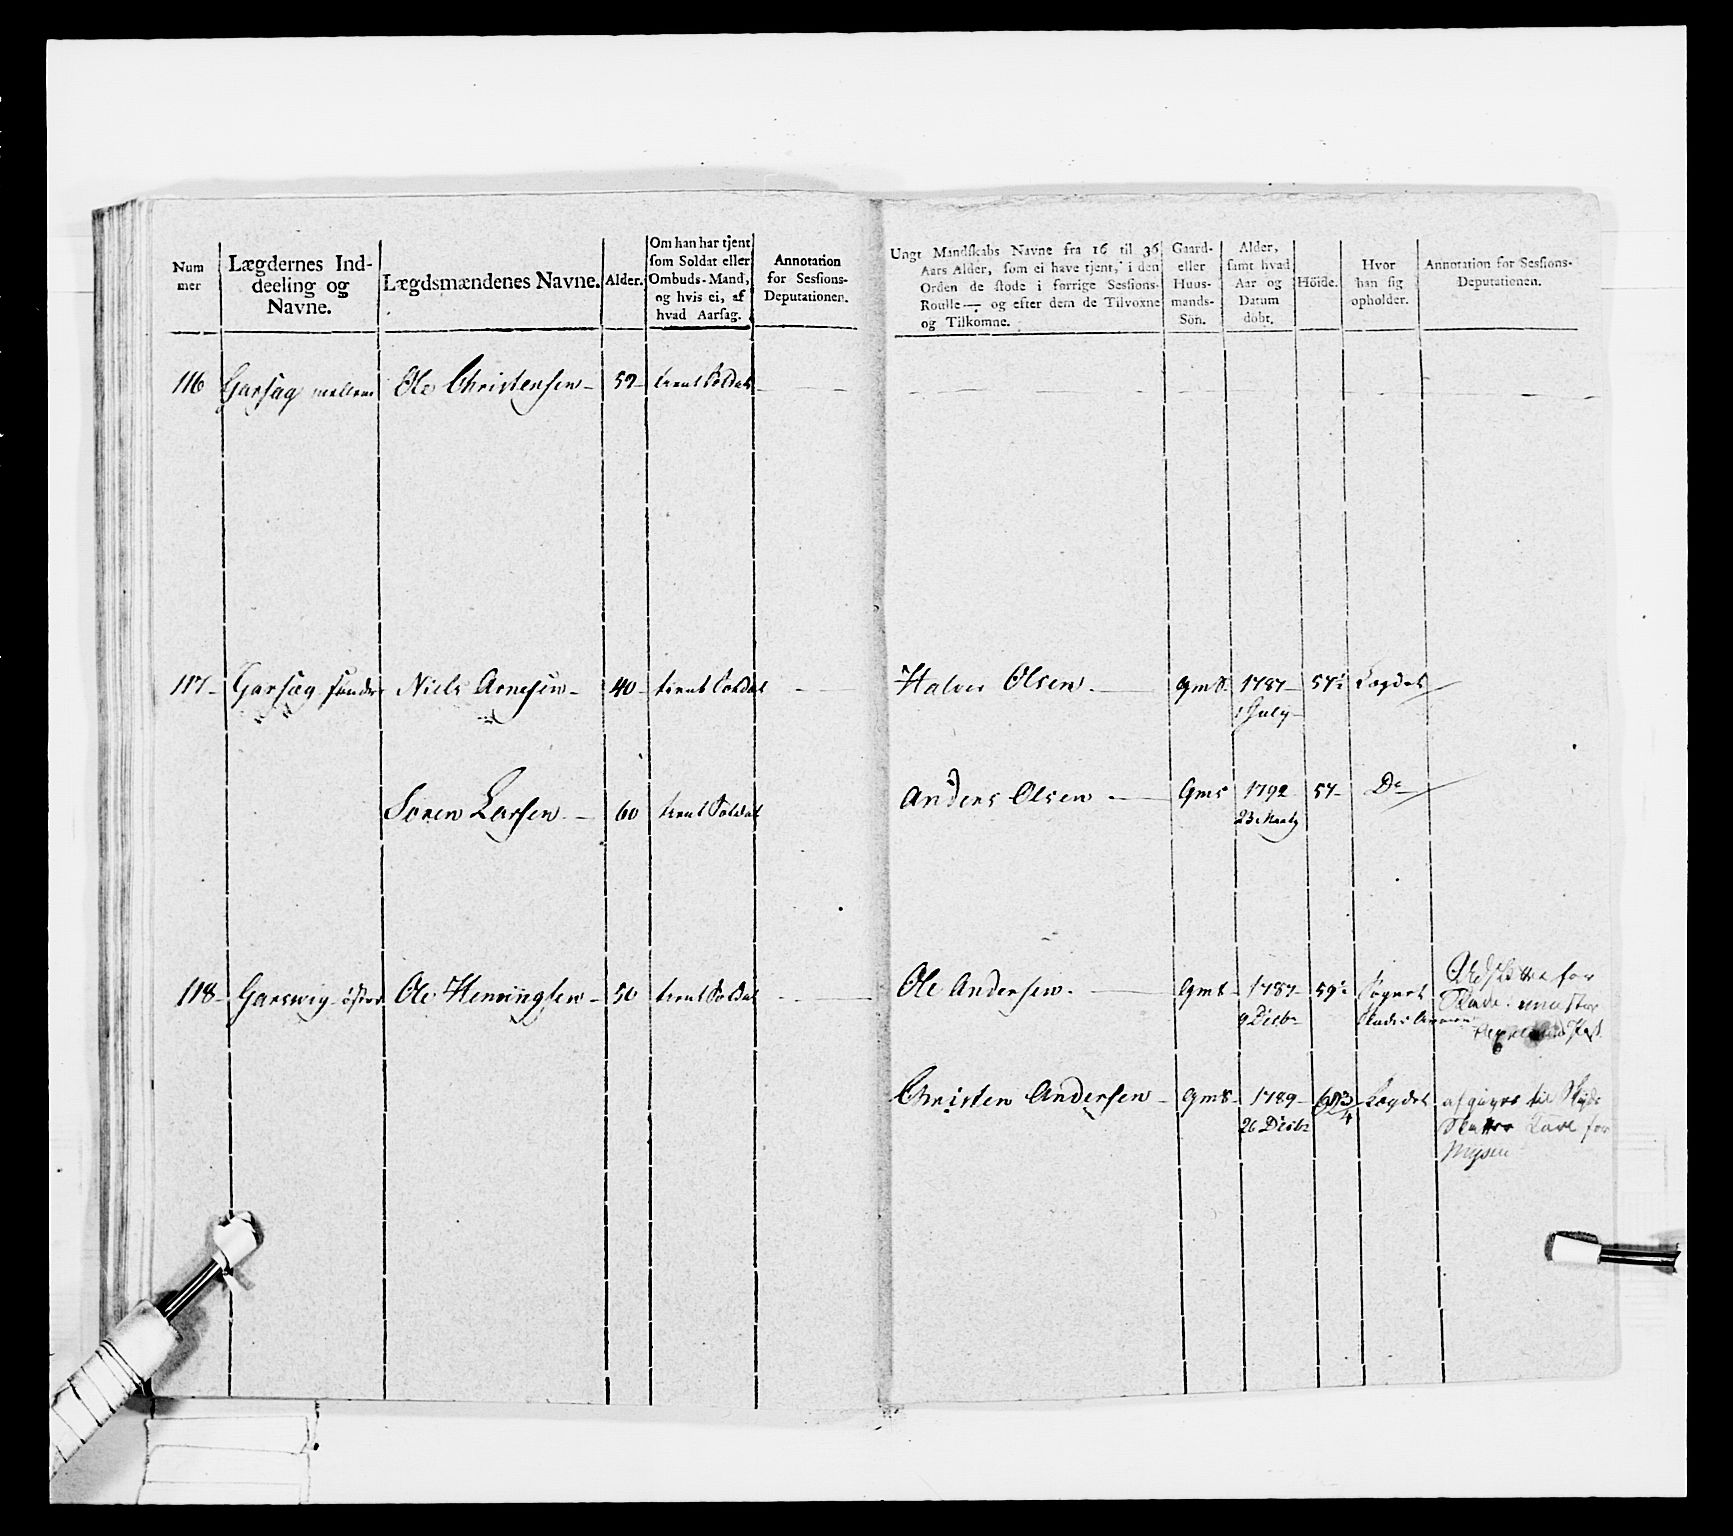 Num
mer
Lægdernes Ind-
deeling og
Navne.
Lægdsmændenes Navne.
Alder.
Om han har tjent
som Soldat eller
Ombuds-Mand,
og hvis ei, af
hvad Aarsag.
Annotation
for Sessions-
Deputationen.
Ungt Mandskabs Navne fra 16 til 36
Aars Alder, som ei have tjent, i den
Orden de stode i forrige Sessions-
Roulle — og efter dem de Tilvoxne
og Tilkomne.
Gaard-
eller
Huus-
mands-
Sön.
Alder,
samt hvad
Aar og
Datum
döbt.
Höide.
Hvor
han sig
opholder.
Annotation for Sessions-
Deputationen.
116 Garsæg mellem Ole Christensen 52 tient Soldat
117 Garsæg søndre Niels Arnesen 40 tient Soldat
Halvor Olsen gms 1787 57½ Lægdet
1 July
Søren Larsen 60 tient Soldat
Anders Olsen gms 1792 57 Do
23 Martz
118 Garswig øster Ole Henningsen 50 tient Soldat
Ole Andersen gms 1787 59½ Sognet
9 Decbr
for
Christen Andersen gms 1789 Lægdet afgiver til
26 Decbr for
Mysen